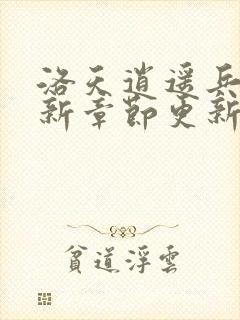 洛天逍遥兵
新章節更新
貧道浮雲